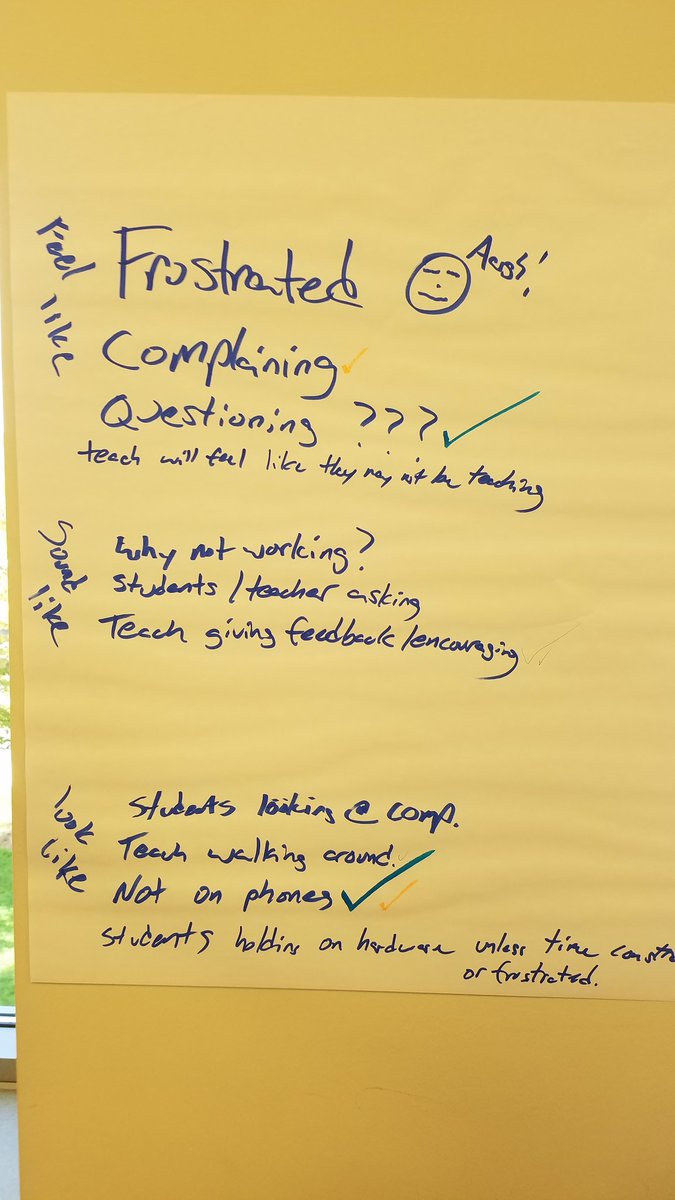 Feel like
Frustrated Aagh!
Complaining
Questioning ???
teach will feel like they may not be teaching
Sound like
Why not working?
Students/teacher asking
Teach giving feedback/encouraging
look like
Students looking @ comp.
Teach walking around.
Not on phones
Students holding on hardware unless time constr
or frustrated.